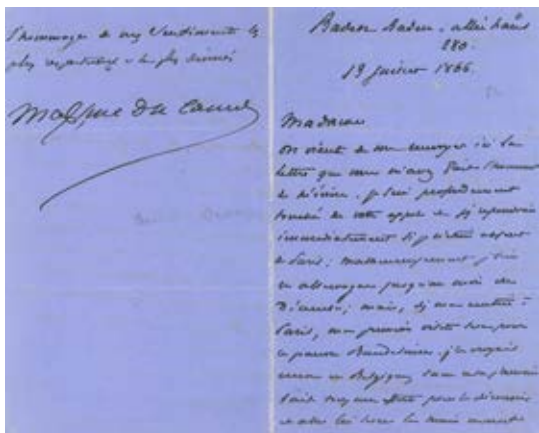 l'hommage de mes sentiments les
plus respectueux et les plus dévoués
Maxime Du Camp
Baden Baden - allée haus
280.
19 juillet 1866.
Madame
On vient de me renvoyer ici la
lettre que vous m'avez fait l'honneur
de m'écrire. je suis profondément
touché de votre appel et j'y répondrais
immédiatement si j'étais
à Paris; malheureusement je suis
en allemagne jusqu'au mois de
Décembre; mais, dès ma rentrée à
Paris, ma première visite sera pour
ce pauvre Baudelaire. je le croyais
encore en Belgique, sans cela j'aurais
fait tous mes efforts pour le découvrir
et aller lui serrer la main